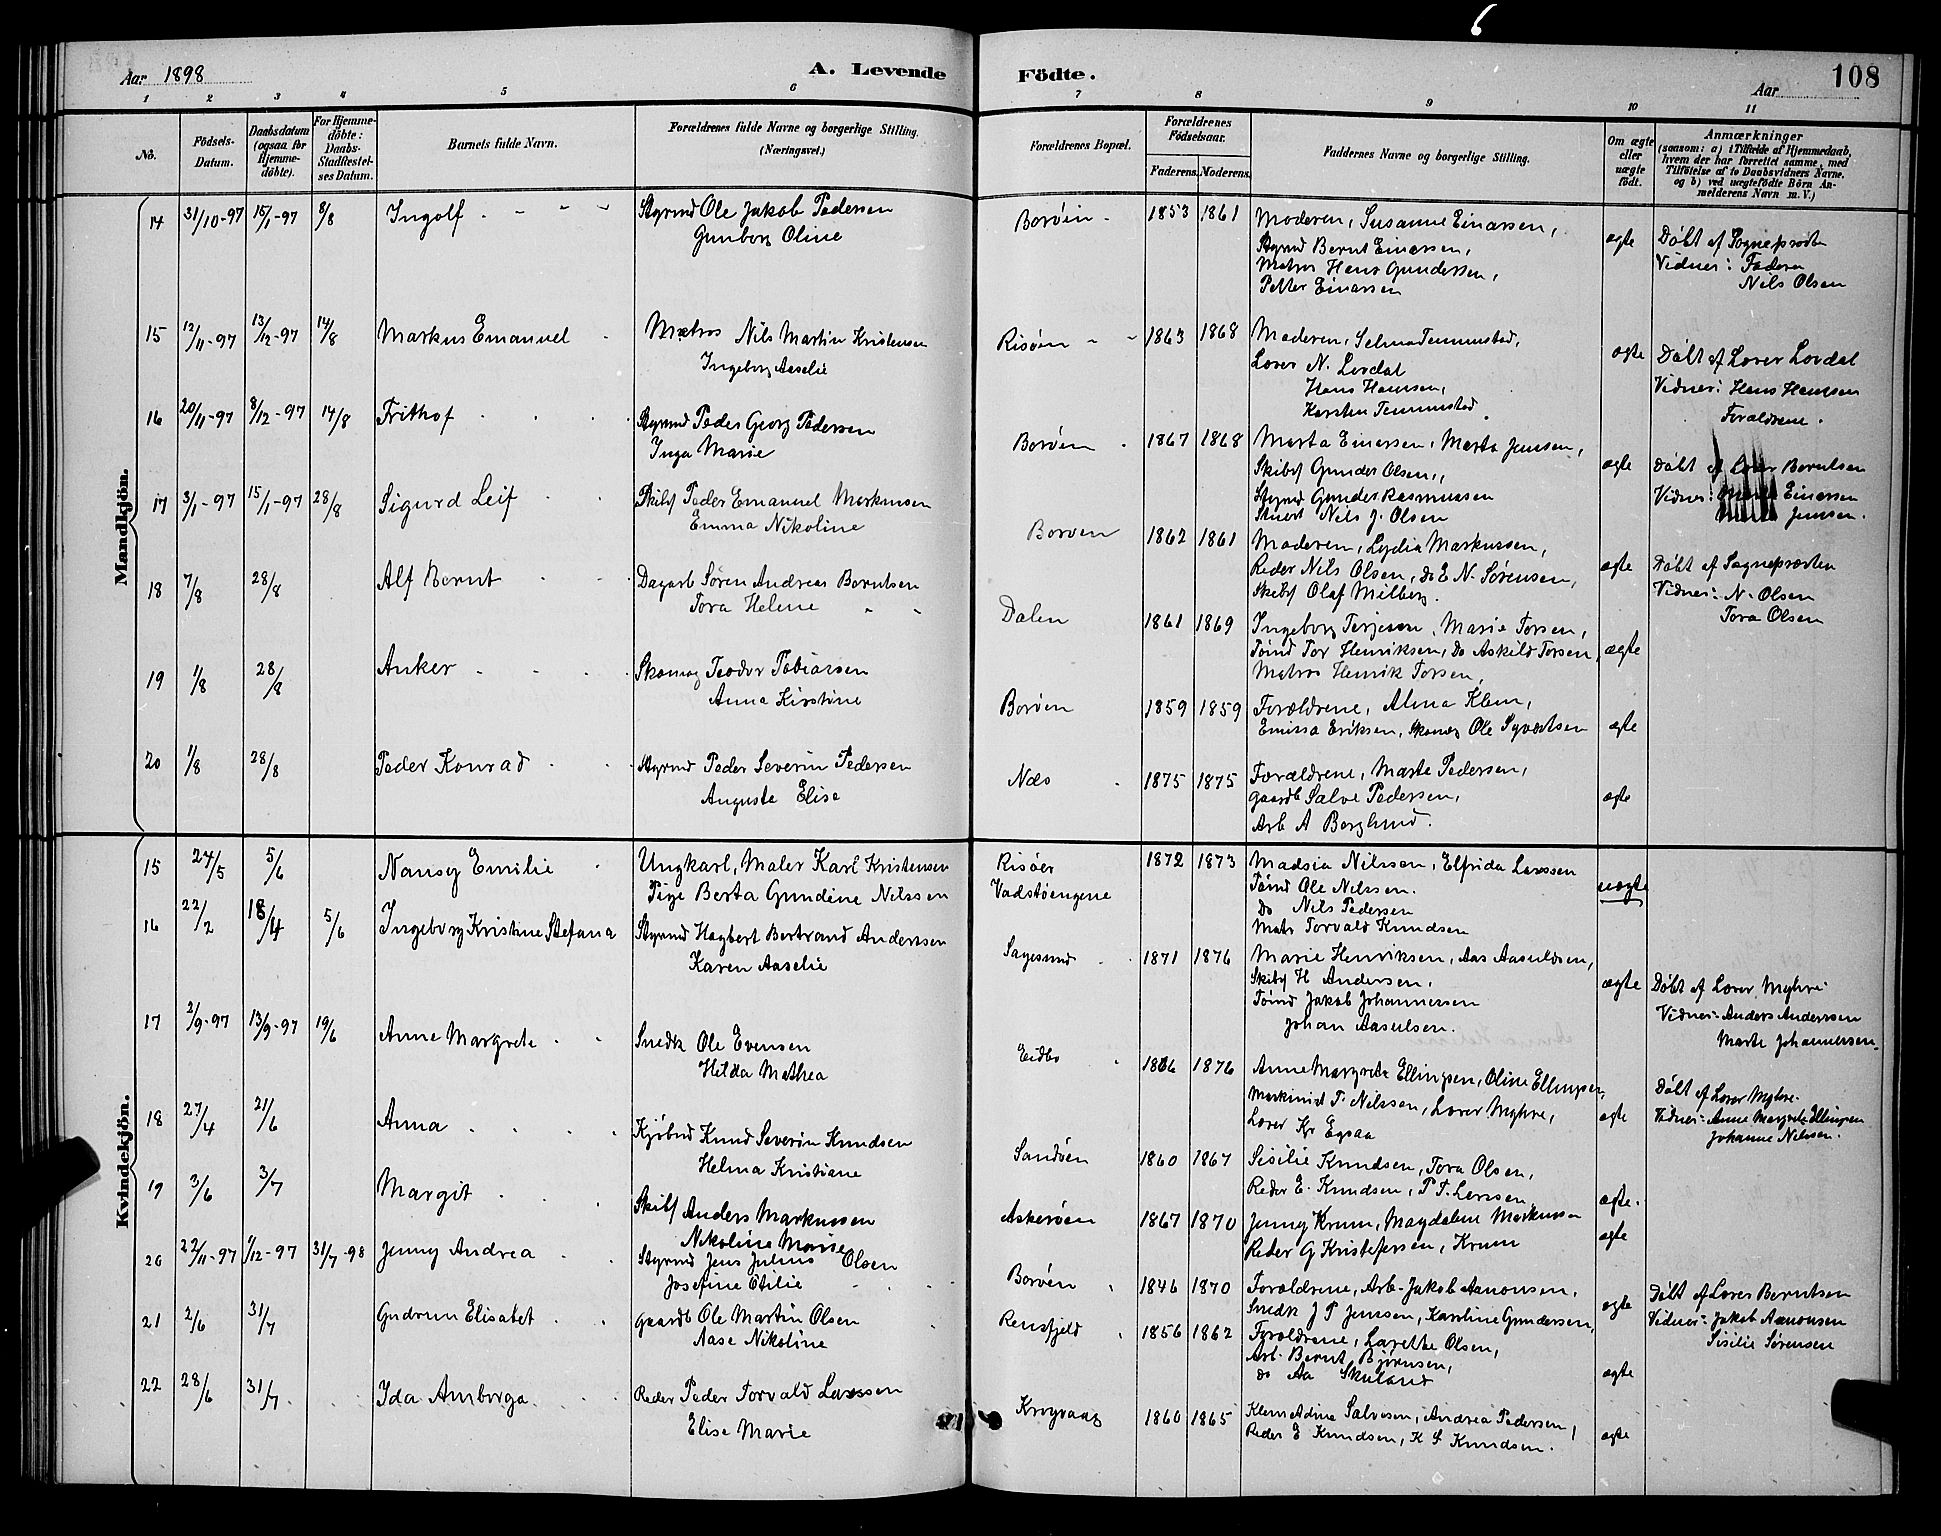 6
Aar 1898
A. Levende
Födte.
Aar
108
1 2 3 4 5 6
7 8 9 10 11
No.
Födsels-
Datum.
Daabsdatum
(ogsaa for
Hjemme-
döbte).
For Hjemme-
döbte:
Daabs-
Stadfestel-
ses Datum.
Barnets fulde Navn.
Forældrenes fulde Navne og borgerlige Stilling.
(Næringsvei.)
Forældrenes Bopæl.
Forældrenes
Födselsaar.
Faderens. Moderens.
Faddernes Navne og borgerlige Stilling.
Om ægte
eller
uægte
födt.
Anmærkninger
(saasom: a) i Tilfælde af Hjemmedaab,
hvem der har forrettet samme, med
Tilföielse af to Daabsvidners Navne,
og b) ved uægtefödte Börn An-
melderens Navn m. V.)
Mandkjön.
14 31/10-97 15/1-97 8/8 Ingolf
Styrmd Ole Jakob Pedersen
Gunborg Oline
Borøen 1853 1861
Moderen, Susanne Einarsen,
Styrmd Bernt Einarsen,
Matros Hans Gundersen,
Petter Einarsen
ægte
Døbt af Sognepresten
Vidner: Faderen
Nils Olsen
15 12/11-97 13/12-97 14/8 Markus Emanuel
Matros Nils Martin Kristensen
Ingeborg Aaselie
Risøen 1863 1868
Moderen, Selma Temmestad,
Lærer N. Lovdal
Hans Hansen,
Karsten Temmestad.
ægte
Døbt af Lærer Lovdal
Vidner: Hans Hansen
Forældrene.
16 20/11-97 8/12-97 14/8 Frithof
Styrmd Peder Georg Pedersen
Inga Marie
Borøen 1867 1868
Marta Einarsen, Marta Jensen,
Skibsf Gunder Olsen,
Styrmd Gunder Rasmussen
Stuert Nils J. Olsen
ægte
Døbt af Lærer Berntsen
Vidner: Marta Einarsen
Marta Jensen.
17 3/1-97 15/1-97 28/8 Sigurd Leif
Skibsf Peder Emanuel Markussen
Emma Nikoline
Borøen 1862 1861
Moderen, Lydia Markussen,
Reder Nils Olsen, do E N. Sørensen,
Skibsf Olaf Milberg.
ægte
Døbt af Sognepresten
Vidner: N. Olsen
Tora Olsen
18 7/8 28/8 Alf Bernt
Dagarb Søren Andreas Berntsen
Tora Helene
Dalen 1861 1869
Ingeborg Terjesen, Marie Torsen,
Tømd Tor Henriksen, Do Askild Torsen,
Matros Henrik Torsen,
ægte
19 1/8 28/8 Anker
Skomag Teodor Tobiassen
Anna Kirstine
Borøen 1859 1859
Forældrene, Alma Klem,
Emissa Eriksen, Skomag Ole Syvertsen
ægte
20 1/8 28/8 Peder Konrad
Styrmd Peder Severin Pedersen
Auguste Elise
Næs 1875 1875
Forældrene, Marte Pedersen,
gaardb Salve Pedersen,
Arb A Berglund.
ægte
Kvindekjön.
15 24/5 5/6 Nansy Emilie
Ungkarl, Maler Karl Kristensen
Pige Berta Gundine Nilssen
Risøer
Vadstøengene
1872 1873
Madsia Nilssen, Elfrida Larssen
Tømd Ole Nilssen.
Do Nils Pedersen
Matr Torvald Knudsen
uægte
16 22/2 18/4 5/6 Ingeborg Kristine Stefana
Styrmd Hagbert Bertrand Anderssen
Karen Aaselie
Sagesund 1871 1876
Marie Henriksen, Aas Aasuldsen,
Skibsf H Andersen,
Tømd Jakob Johannessen
Johan Aasulsen.
ægte
Døbt af Lærer Myhre
Vidner: Anders Anderssen
Marte Johannessen.
17 2/9-97 13/9-97 19/6 Anne Margrete
Snedk Ole Evensen
Hilda Mathea
Eidbo 1866 1876
Anne Margrete Ellingsen, Oline Ellingsen,
Maskinist T. Nilssen, Lærer Myhre,
Lærer Kr Egsaa
ægte
Døbt af Lærer Myhre.
Vidner: Anne Margrete Ellingsen
Johanne Nilssen.
18 27/4 21/6 Anna
Kjøbmd Knud Severin Knudsen
Helma Kristiane
Sandøen 1860 1867
Sisilie Knudsen, Tora Olsen,
Reder E. Knudsen, P. T. Larssen
ægte.
19 3/6 3/7 Margit
Skibsf Anders Markussen
Nikoline Marie
Askerøen 1867 1870
Jenny Krum, Magdalene Markussen
Reder G Kristofersen, Krum
ægte
20 22/11-97 1/12-97 31/7-98 Jenny Andrea
Styrmd Jens Julius Olsen
Josefine Otilie
Borøen 1846 1870
Forældrene, Arb. Jakob Aanonsen,
Snedk J P Jenssen, Karoline Gundersen,
ægte
Døbt af Lærer Berntsen
Vidner: Jakob Aanonsen
Sisilie Sørensen
21 2/6 31/7 Gudrun Elisabet
gaardb Ole Martin Olsen
Aase Nikoline
Rensfjeld 1856 1862
Forældrene, Larette Olsen,
Arb. Bernt Bjørnsen,
do Aa Skuland
ægte
22 28/6 31/7 Ida Amborga
Reder Peder Torvald Larssen
Elise Marie
Krogvaag 1860 1865
Klem Adine Salvesen, Andrea Pedersen,
Reder E Knudsen, K S Knudsen.
ægte